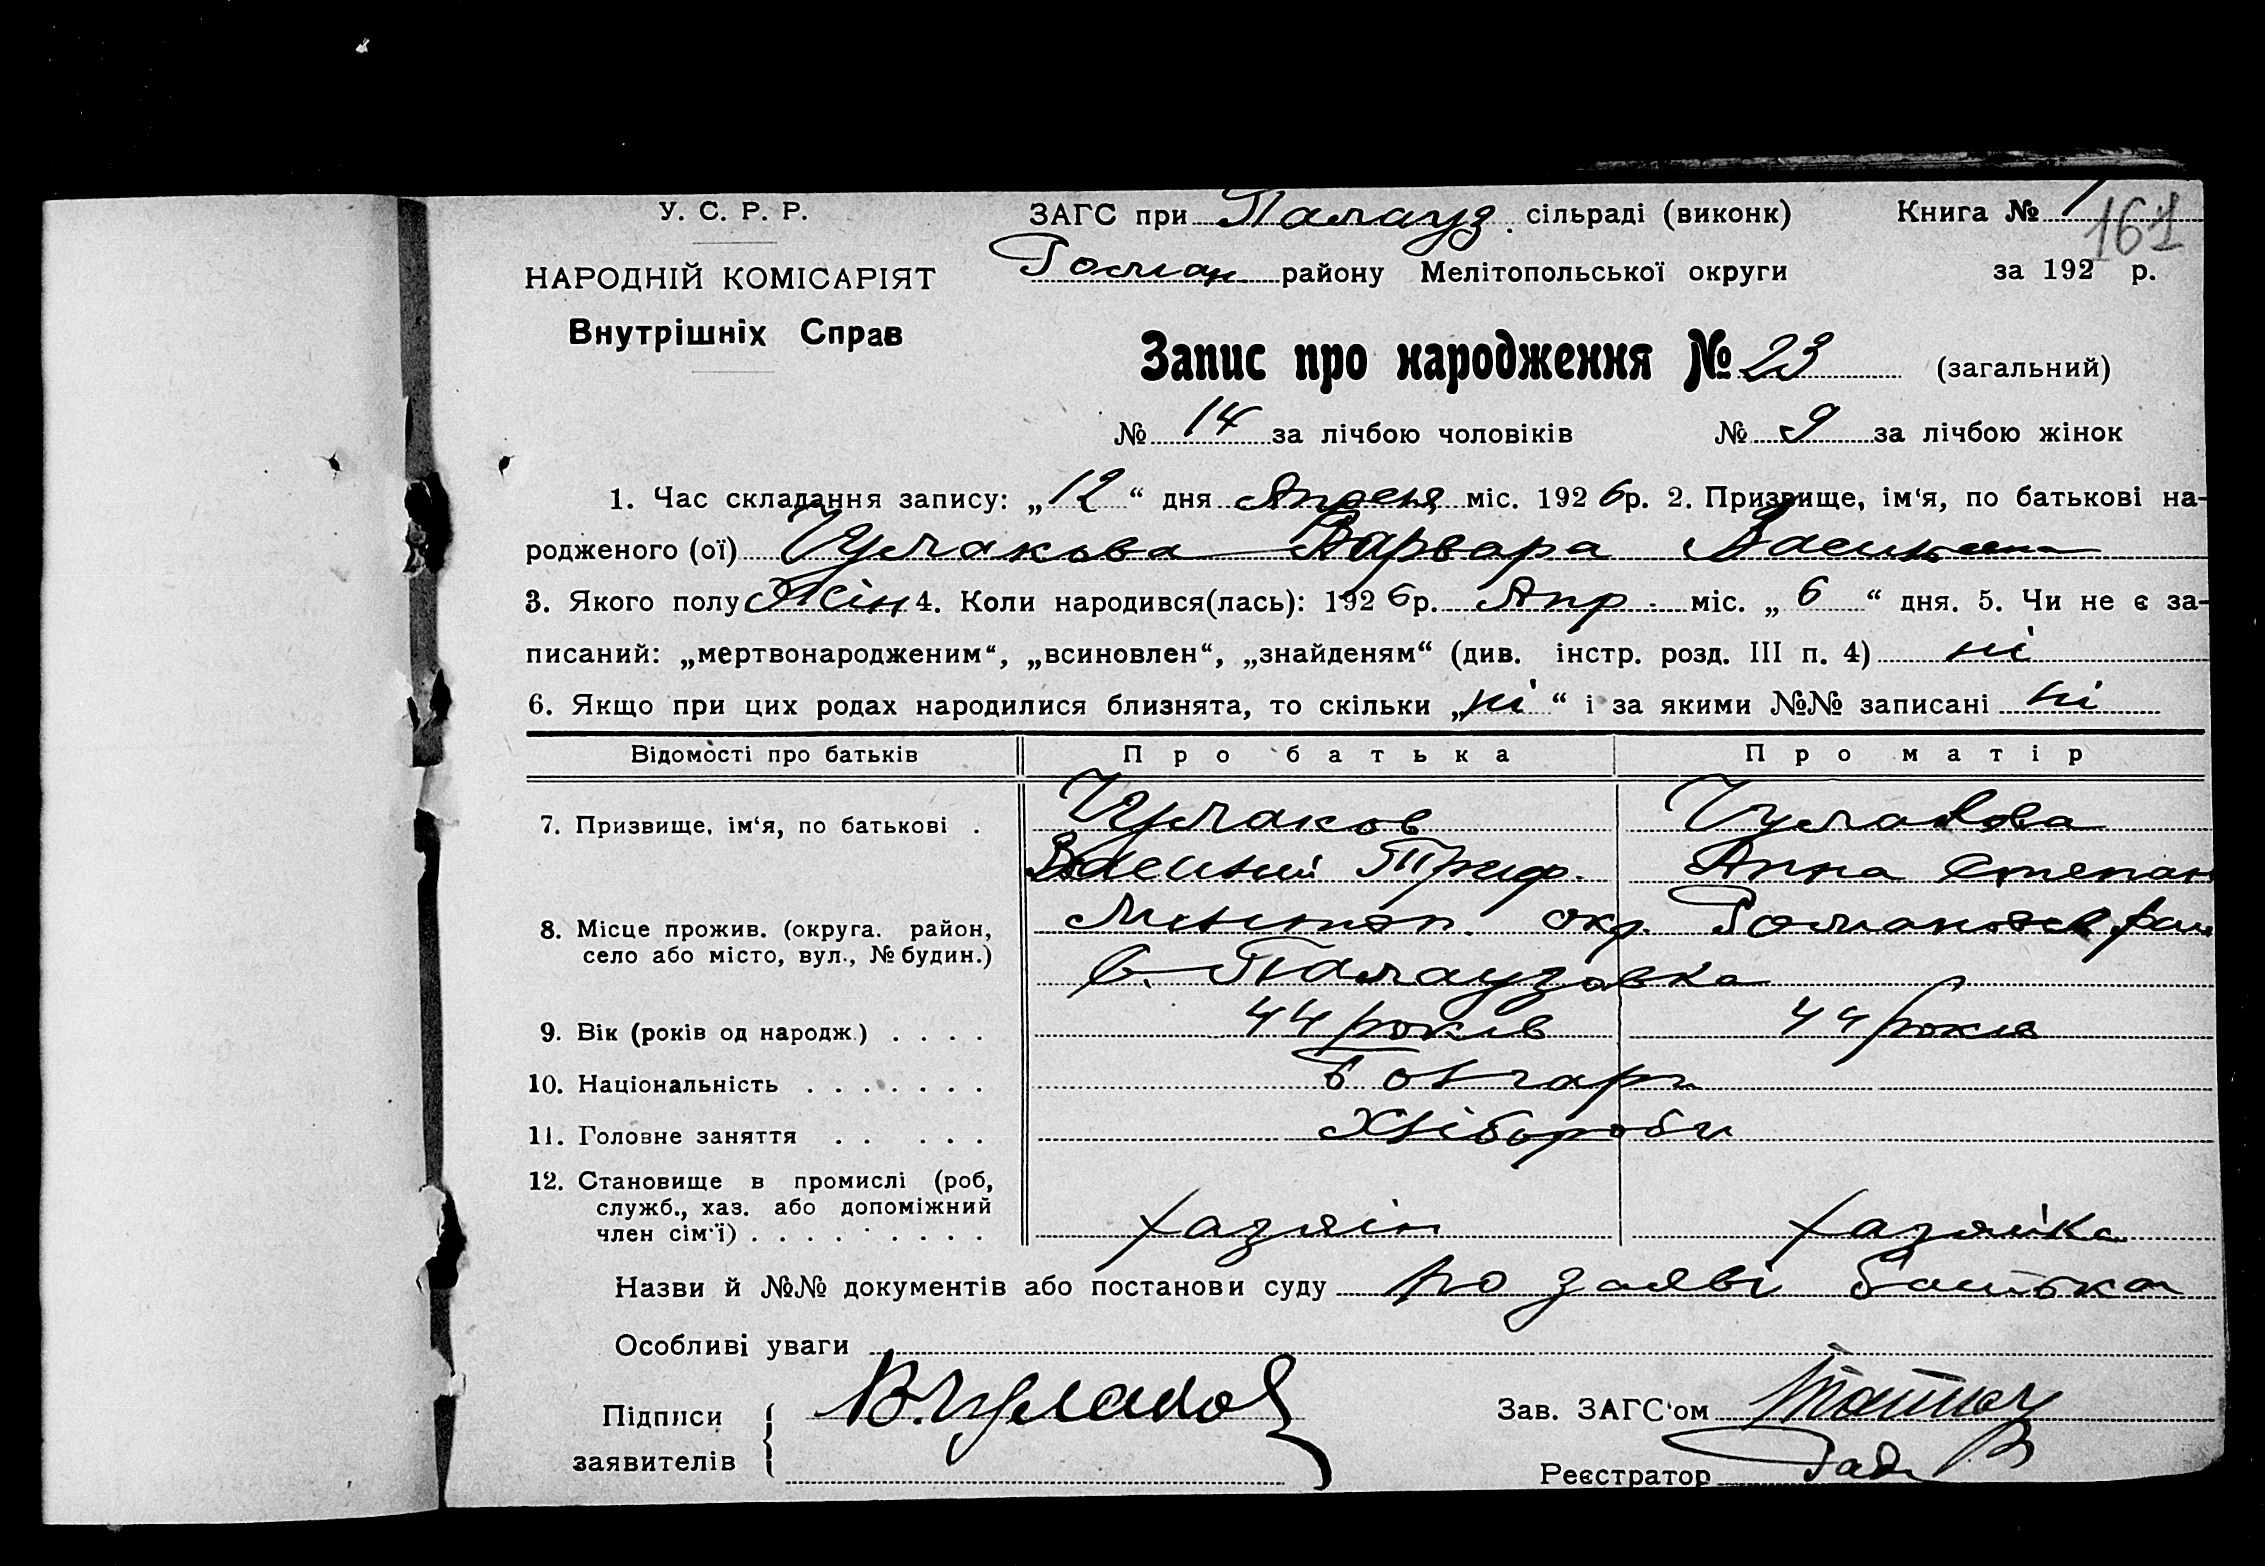 У. С. Р. Р.
НАРОДНІЙ КОМІСАРІЯТ
Внутрішніх Справ
ЗАГС при Палауз. сільраді (виконк) Книга № 1
161
Роман. району Мелітопольської округи за 192 р.
Запис про народження № 23 (загальний)
№ 14 за лічбою чоловіків № 9 за лічбою жінок
1. Час складання запису: „ 12 “ дня Апреля міс. 192 6 р. 2. Призвище, ім‘я, по батькові на-
родженого (ої) Чумакова Варвара Васильевна
3. Якого полу Жін 4. Коли народився(лась): 192 6 р. Апр. міс. „ 6 “ дня. 5. Чи не є за-
писаний: „мертвонародженим“, „всиновлен“, „знайденям“ (див. інстр. розд. III п. 4) ні
6. Якщо при цих родах народилися близнята, то скільки „ ні “ і за якими №№ записані ні
Відомості про батьків Про батька Про матір
7. Призвище, ім‘я, по батькові . Чумаков Чумакова
Василий Триф. Анна Степан
8. Місце прожив. (округа. район, Мелитоп. окр. Романовск рай
село або місто, вул., № будин.) с. Палаузовка
9. Вік (років од народж.) . . . . 44 років 44 років
10. Національність . . . . . . . Болгари
11. Головне заняття . . . . . Хлібороби
12. Становище в промислі (роб,
служб., хаз. або допоміжний
член сім‘ї) . . . . . . . . . хазяін хазяйка
Назви й №№ документів або постанови суду по заяві батька
Особливі уваги
Підписи В. Чумаков Зав. ЗАГС‘ом
заявителів Реєстратор